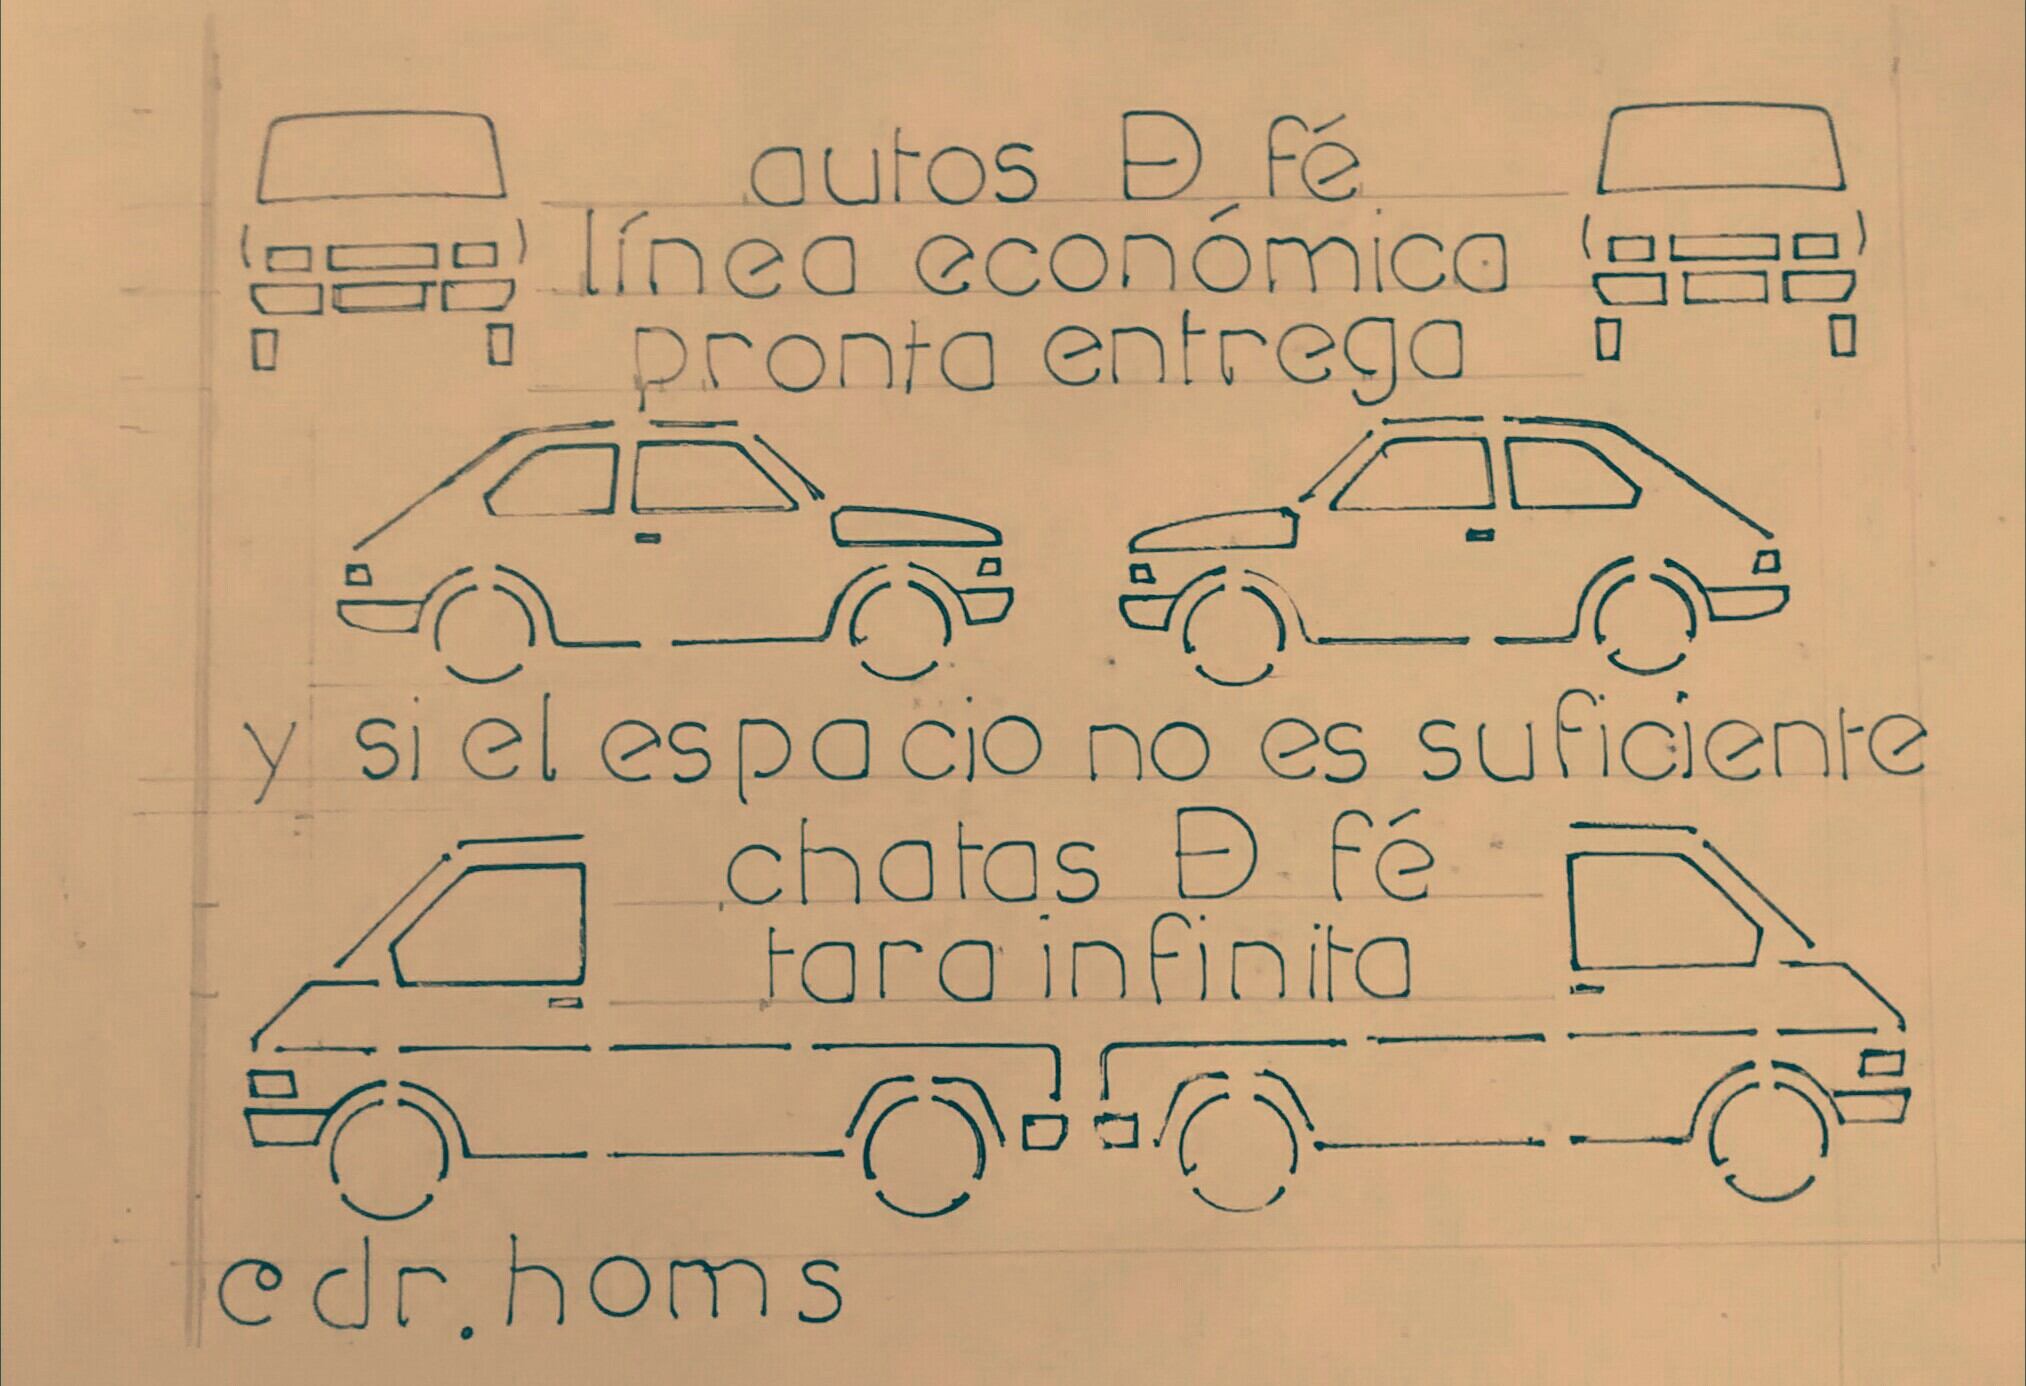 autos Đ fé
línea económica
pronta entrega
y si el espacio no es suficiente
chatas Đ fé
tara infinita
@dr.homs